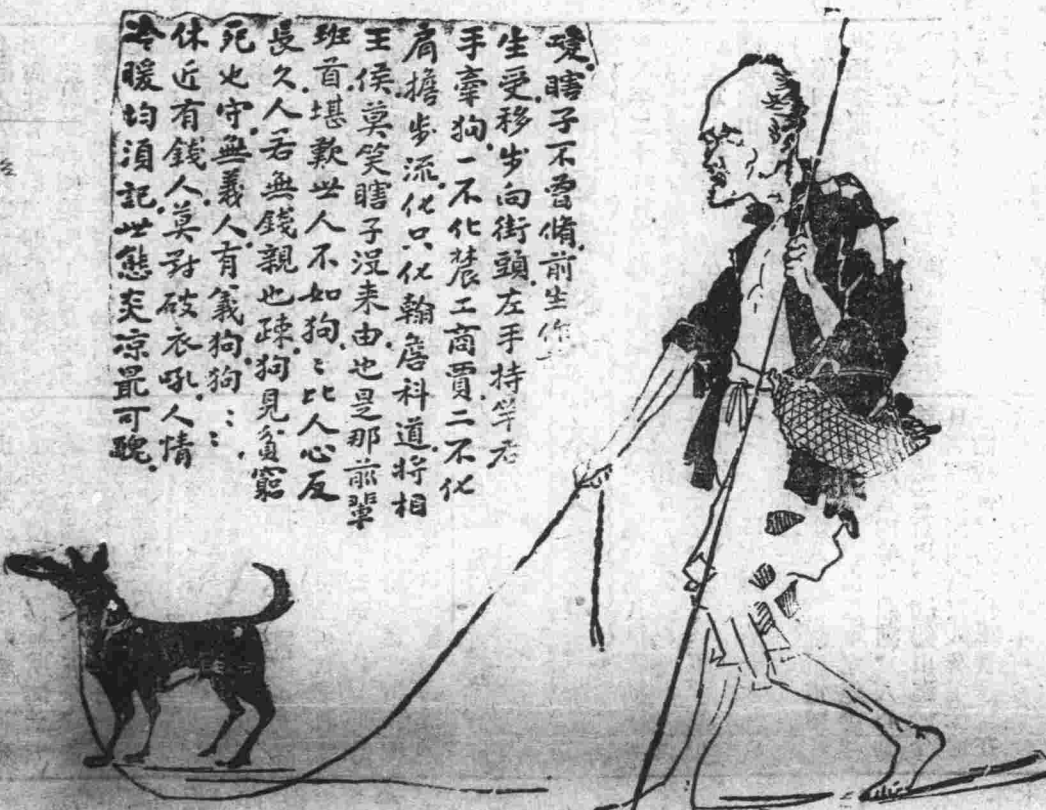 瞎子不曾脩前生作
生受移步向街頭左手持竿右
手牽狗一不化農工商賈二不化
肩擔步流化只化翰詹科道將相
王侯莫笑瞎子沒来由也是那前輩
班首堪歎世人不如狗〻比人心反
長久人若無錢親也疎狗見貧窮
死也守無義人有義狗狗〻〻
休近有錢人莫對破衣吼人情
冷暖均須記世態炎凉最可醜